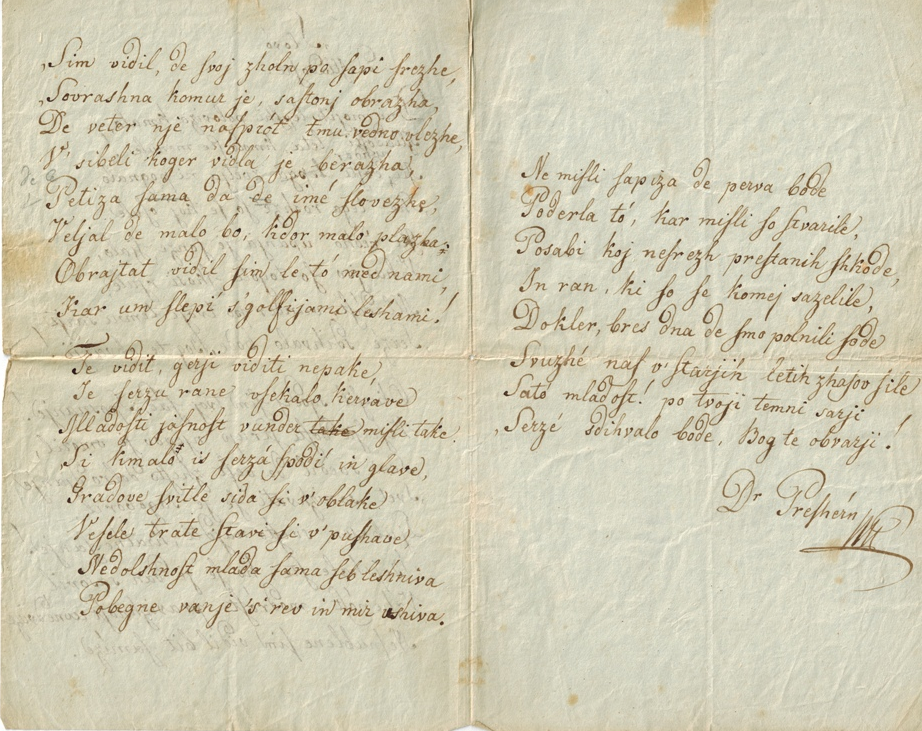 Sim vidil, de svoj zholn po sapi srezhe,
Sovrashna komur je, sastonj obrazha,
De veter nje nasprót tmu vedno vlezhe,
V' sibeli koger vidla je, berazha,
Petiza sama da de imé slovezhe,
Veljal de malo bo, kdor malo plazha;
Obrajtat vidil sim le tó med nami,
Kar um slepí s, golfijami, leshami!
Te vidit, gerji viditi nepake,
Je serzu rane vsekalo, kervave
Mladosti jasnost vunder take misli take
Si kmalo is serzá spodi in glave,
Gradove svitle sida si v' oblake
Vesele trate stavi si v' pushave
Nedolshnost mlada sama seb leshniva
Pobegne vanje 's rev in mir vshiva.
Ne misli sapiza de perva bode
Poderla tó, kar misli so stvarile,
Posabi koj nesrezh prestanih shkode,
In ran, ki so se komej sazelile,
Dokler, bres dna de smo polnili sode
Svuzhé nas v' starjih letih zhasov sile
Sato mladost! po tvoji temni sarji
Serzé sdihvalo bode, Bog te obvarji!
Dr Preshérn